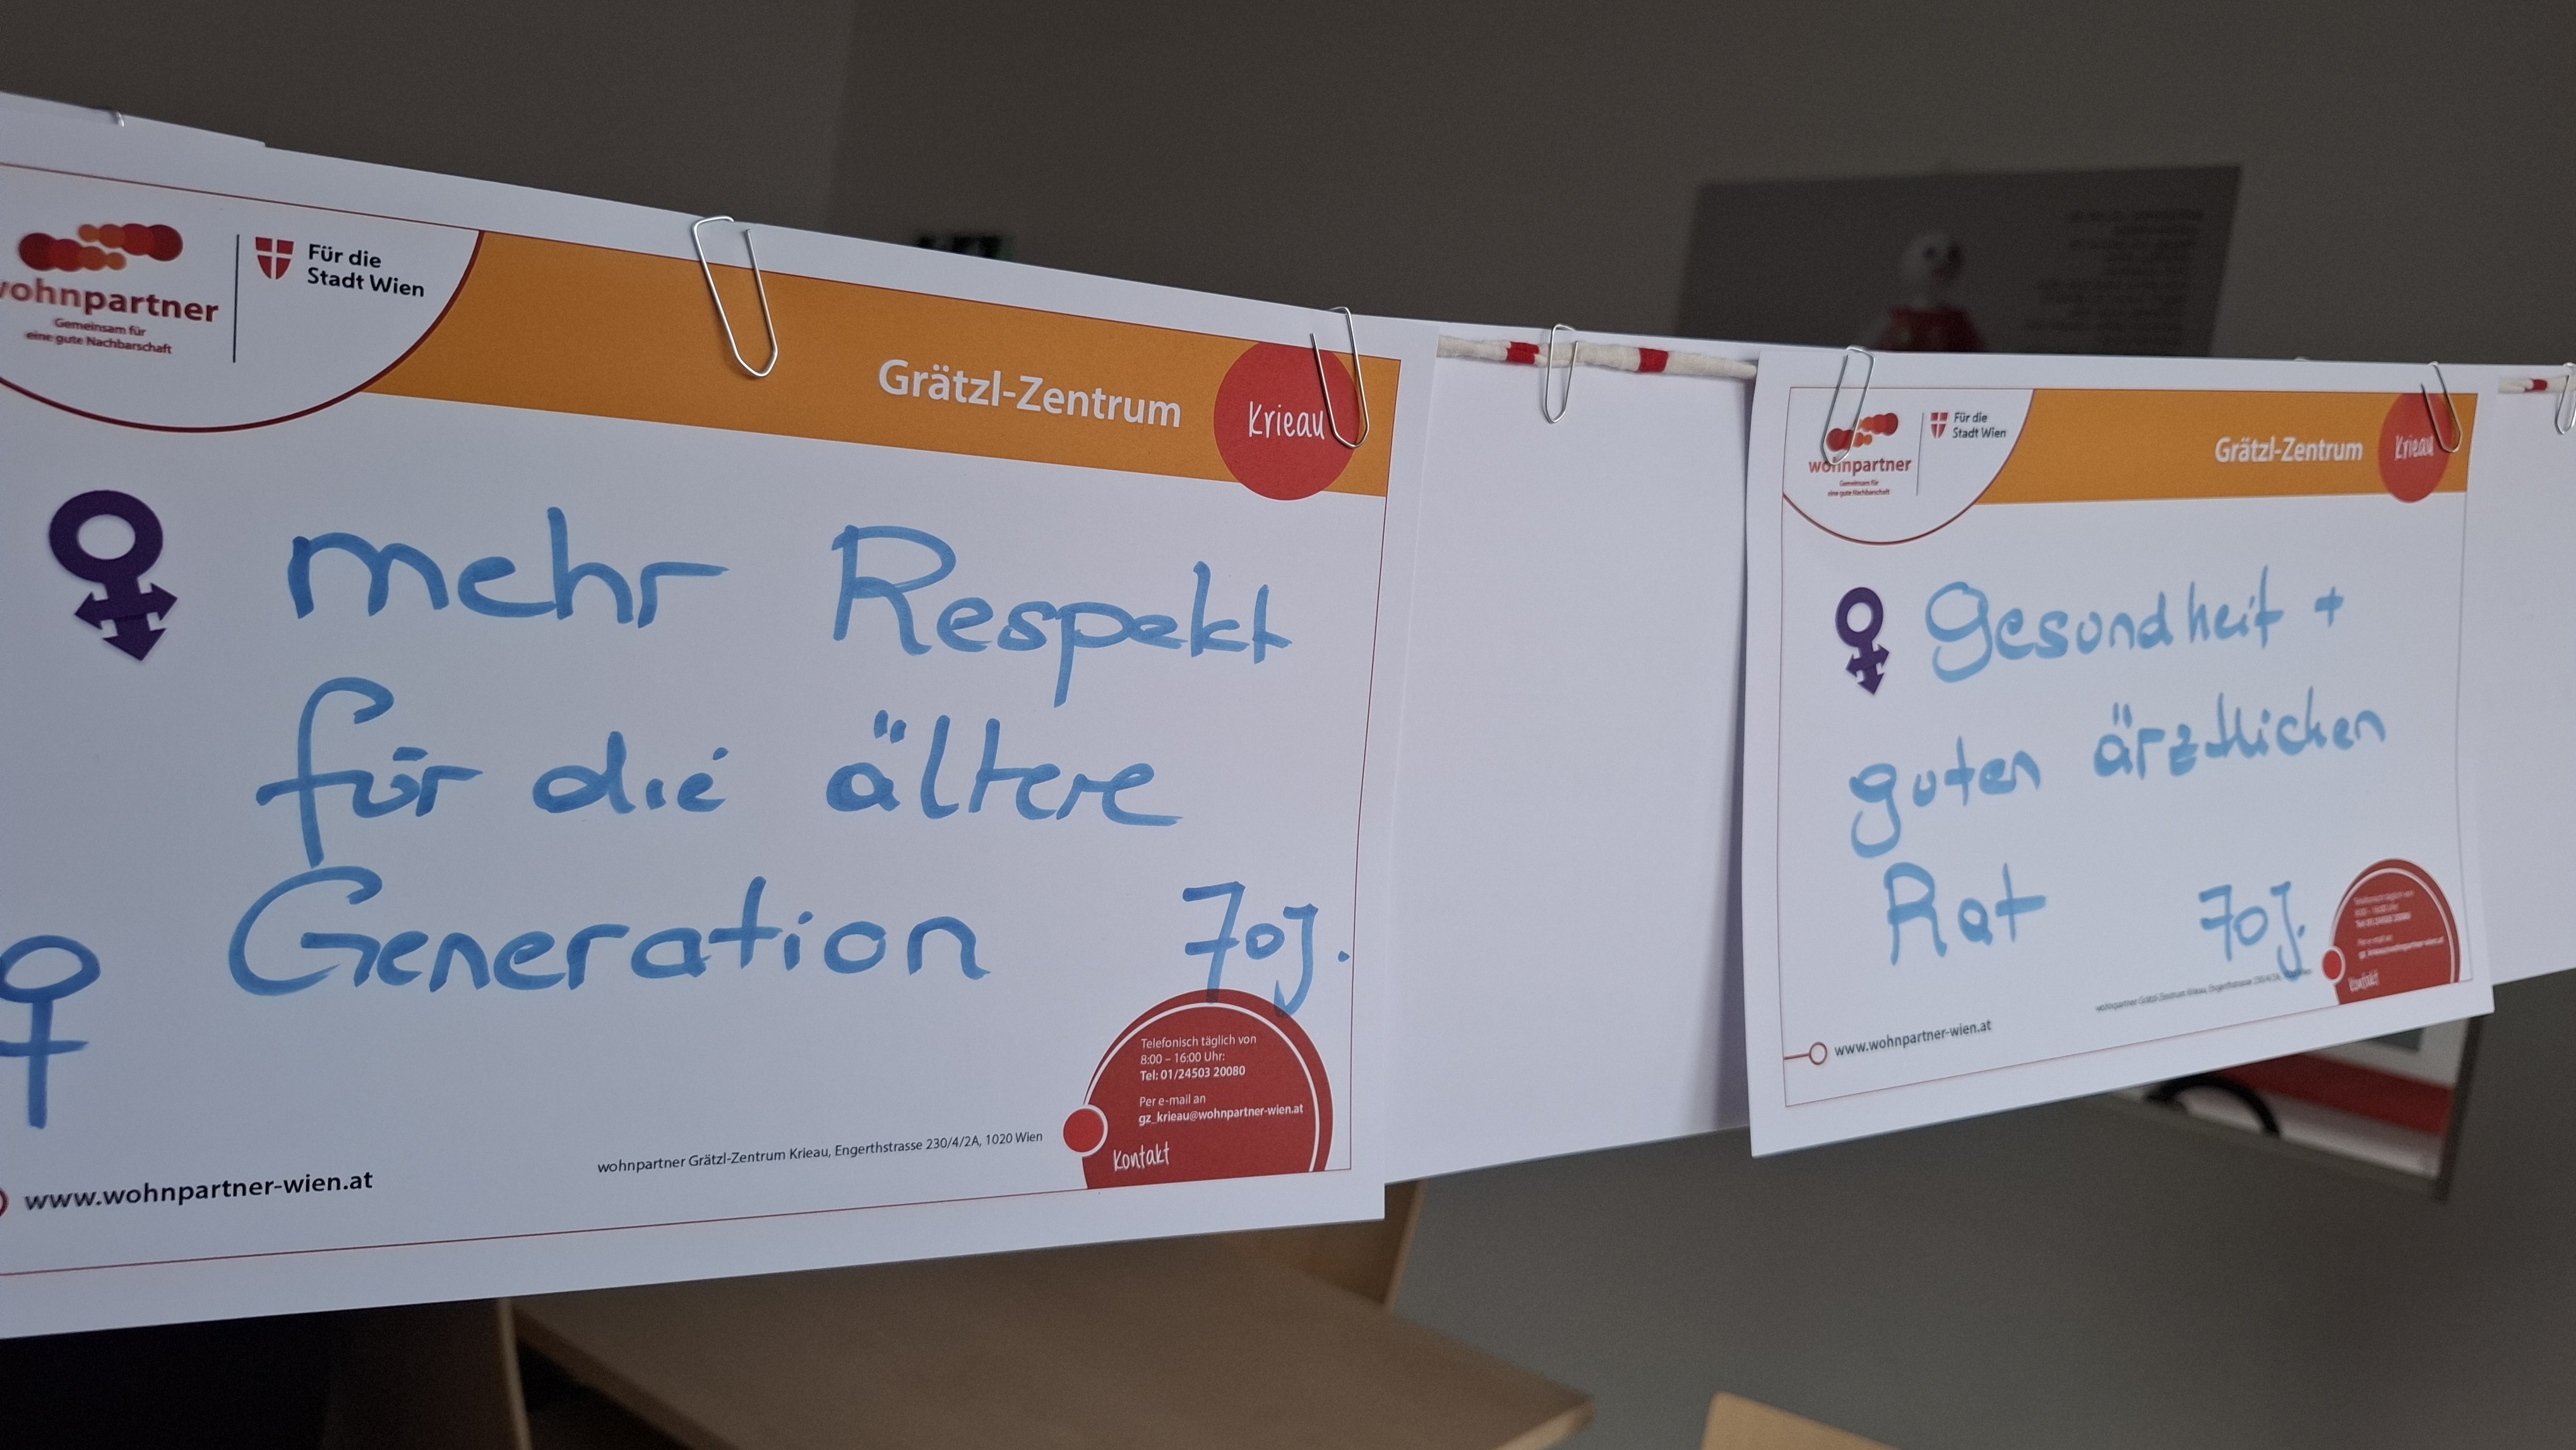 wohnpartner
Gemeinsam für
eine gute Nachbarschaft
Für die
Stadt Wien
Grätzl-Zentrum
Krieau
mehr Respekt
für die ältere
Generation 70J.
Telefonisch täglich von
8:00 – 16:00 Uhr:
Tel: 01/24503 20080
Per e-mail an
gz_krieau@wohnpartner-wien.at
Kontakt
wohnpartner Grätzl-Zentrum Krieau, Engerthstrasse 230/4/2A, 1020 Wien
www.wohnpartner-wien.at
wohnpartner
Gemeinsam für
eine gute Nachbarschaft
Für die
Stadt Wien
Grätzl-Zentrum
Krieau
Gesundheit +
guten ärztlichen
Rat 70J.
Telefonisch täglich von
8:00 – 16:00 Uhr:
Tel: 01/24503 20080
Per e-mail an
gz_krieau@wohnpartner-wien.at
Kontakt
wohnpartner Grätzl-Zentrum Krieau, Engerthstrasse 230/4/2A,
www.wohnpartner-wien.at